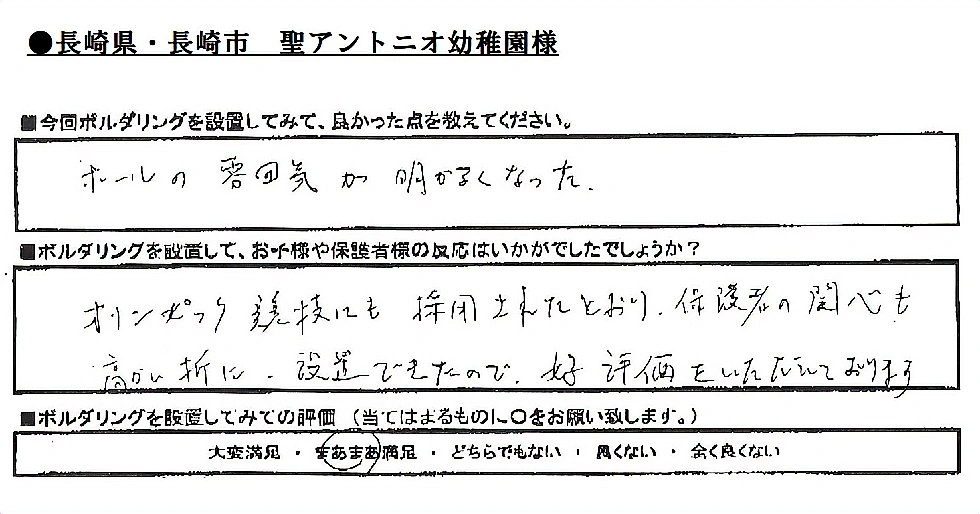 ●長崎県・長崎市　聖アントニオ幼稚園様
■今回ボルダリングを設置してみて、良かった点を教えてください。
ホールの雰囲気が明かるくなった。
■ボルダリングを設置して、お子様や保護者様の反応はいかがでしたでしょうか？
オリンピック競技にも採用されたとおり、保護者の関心も
高かい折に、設置できたので、好評価をいただいております
■ボルダリングを設置してみての評価　（当てはまるものに○をお願い致します。）
大変満足　・　まあまあ満足　・　どちらでもない　・　良くない　・　全く良くない